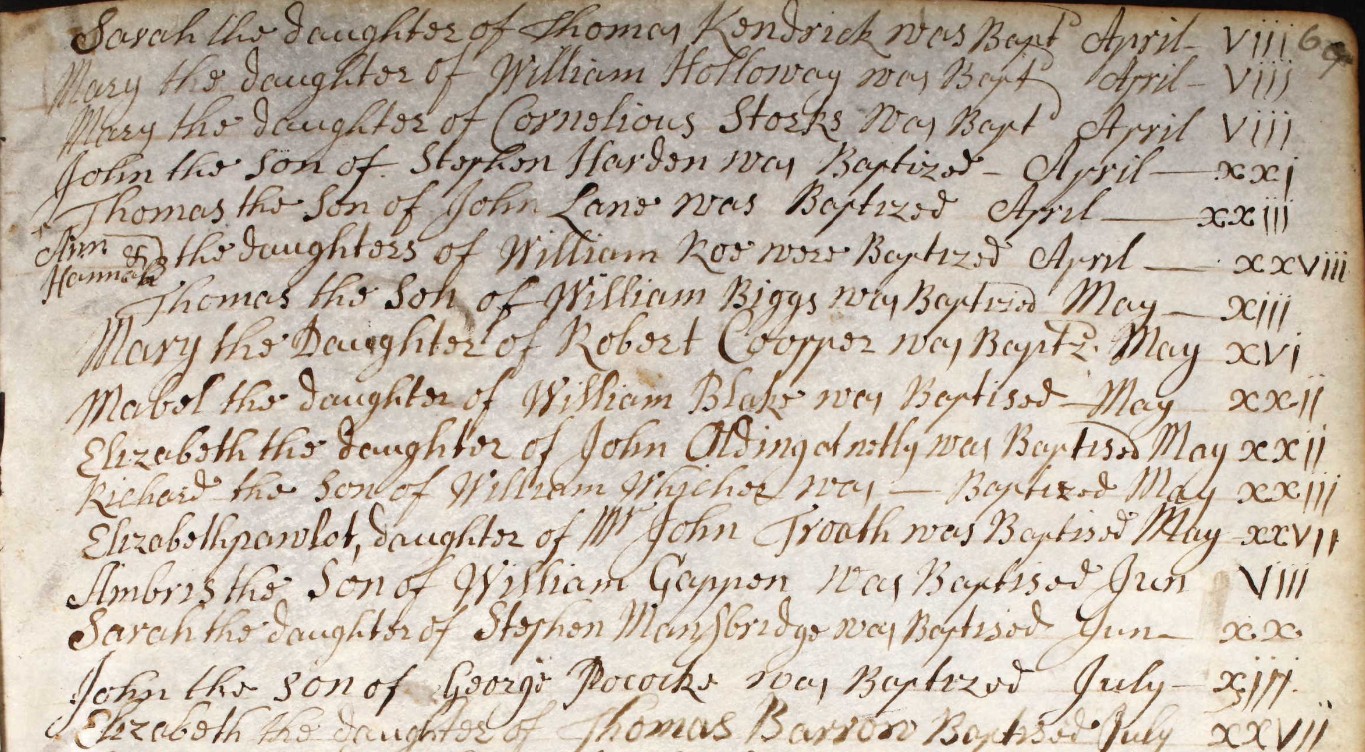 Sarah the daughter of Thomas Kendrick was Bapt^d April viii 69
Mary the daughter of William Holloway was Bapt^d April – viii
Mary the daughter of Cornelious Storks was Bapt^d April viii
John the Son of Stephen Harden was Baptized – April — xxj
Thomas the Son of John Lane was Baptized April — xxiii
Ann & Hannah the daughters of William Roe were Baptized April — xxviii
Thomas the Son of William Biggs was Baptized May — xiii
Mary the Daughter of Robert Coopper was Baptz. May xvj
Mabel the daughter of William Blake was Baptised May xxii
Elizabeth the daughter of John Olding at netly was Baptised May xxii
Richard the Son of William Whicher was — Baptized May xxiij
Elizabethpawlot, daughter of Mr John Troath was Baptised May xxvii
Ambris the Son of William Gappen was Baptised Jun viii
Sarah the daughter of Stephen Mansbridge was Baptised Jun xx
John the Son of George Pococke was Baptized July – xiij
Elizabeth the daughter of Thomas Barrow Baptised July xxvii